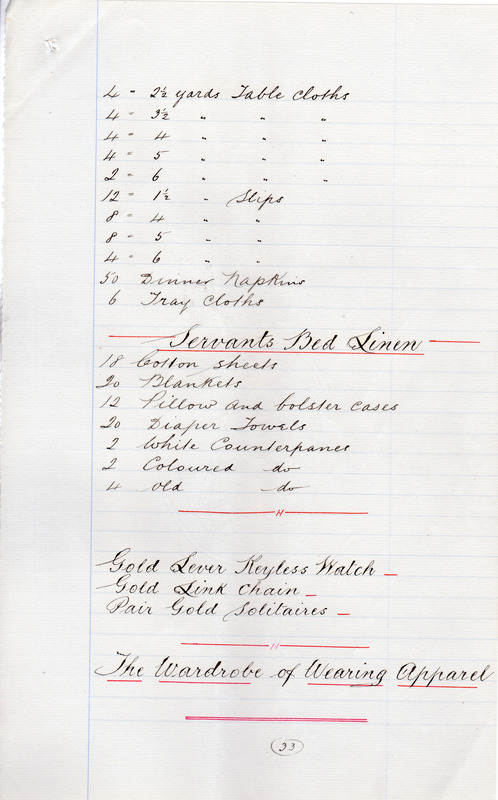 4 - 2½ yards Table Cloths
4 - 3½ " " "
4 - 4 " " "
4 - 5 " " "
2 - 6 " " "
12 - 1½ " Slips
8 - 4 " "
8 - 5 " "
4 - 6 " "
50 Dinner Napkins
6 Tray Cloths
Servants Bed Linen
18 Cotton sheets
20 Blankets
12 Pillow and bolster cases
20 Diaper Towels
2 White Counterpanes
2 Coloured do
4 Old do
Gold Lever Keyless Watch
Gold Link Chain
Pair Gold Solitaires
The Wardrobe of Wearing Apparel
33